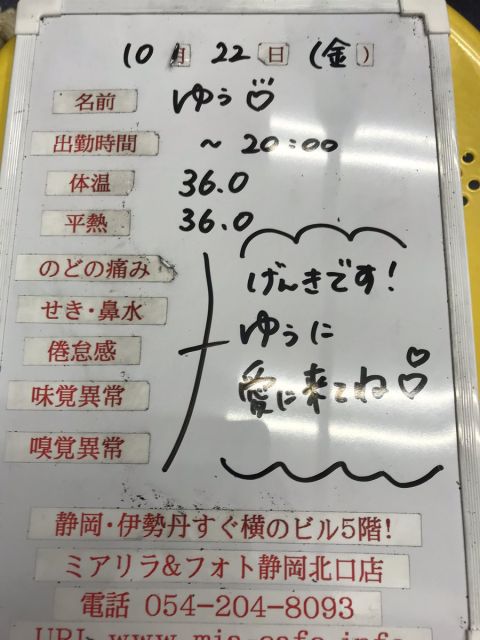 10月22日(金)
名前 ゆう♡
出勤時間 ~20:00
体温 36.0
平熱 36.0
のどの痛み
せき・鼻水
倦怠感
味覚異常
嗅覚異常
げんきです!
ゆうに
愛に来てね♡
静岡・伊勢丹すぐ横のビル5階!
ミアリラ&フォト静岡北口店
電話 054-204-8093
URL www.mia-cafe.info